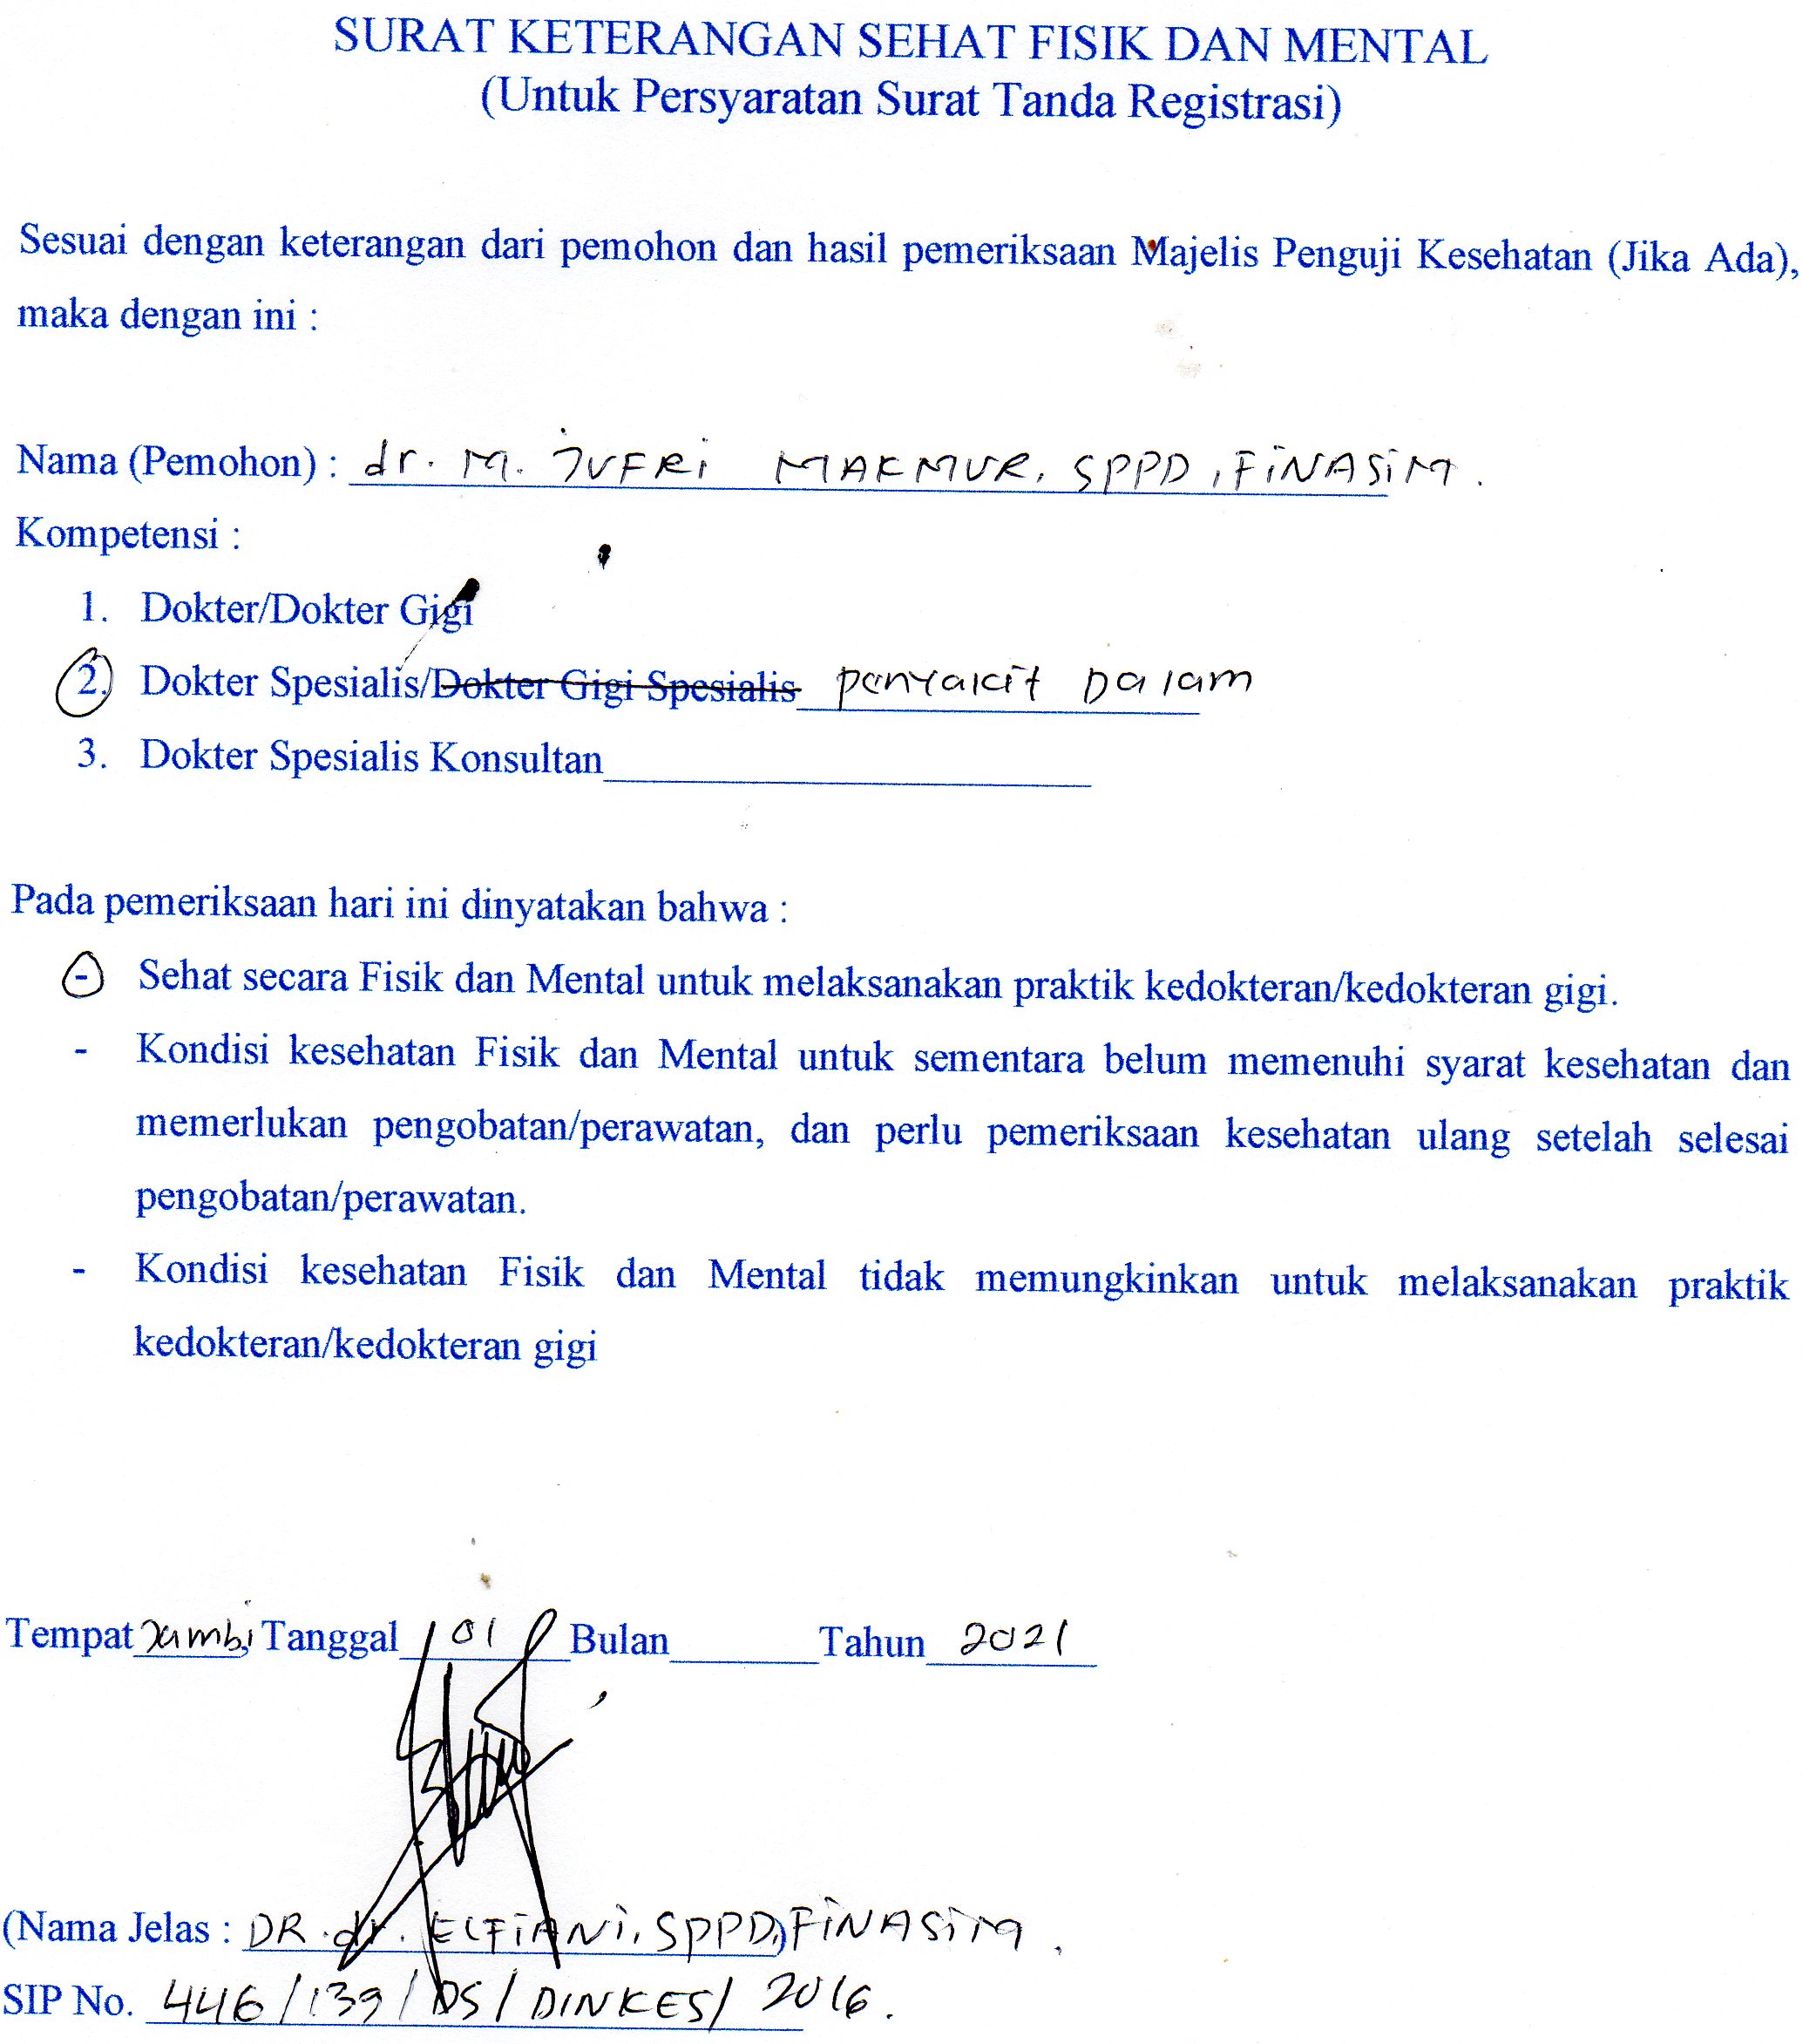 SURAT KETERANGAN SEHAT FISIK DAN MENTAL
(Untuk Persyaratan Surat Tanda Registrasi)
Sesuai dengan keterangan dari pemohon dan hasil pemeriksaan Majelis Penguji Kesehatan (Jika Ada),
maka dengan ini :
Nama (Pemohon) : dr. M. JUFRi MAKMUR, SPPD, FiNASiM.
Kompetensi :
1. Dokter/Dokter Gigi
2. Dokter Spesialis/Dokter Gigi Spesialis penyakit Dalam
3. Dokter Spesialis Konsultan
Pada pemeriksaan hari ini dinyatakan bahwa :
- Sehat secara Fisik dan Mental untuk melaksanakan praktik kedokteran/kedokteran gigi.
- Kondisi kesehatan Fisik dan Mental untuk sementara belum memenuhi syarat kesehatan dan
memerlukan pengobatan/perawatan, dan perlu pemeriksaan kesehatan ulang setelah selesai
pengobatan/perawatan.
- Kondisi kesehatan Fisik dan Mental tidak memungkinkan untuk melaksanakan praktik
kedokteran/kedokteran gigi
Tempat Jambi, Tanggal 01 Bulan Tahun 2021
(Nama Jelas : DR. dr. ELFiANi, SPPD, FiNASiM.
SIP No. 446/139/DS/DINKES/2016.